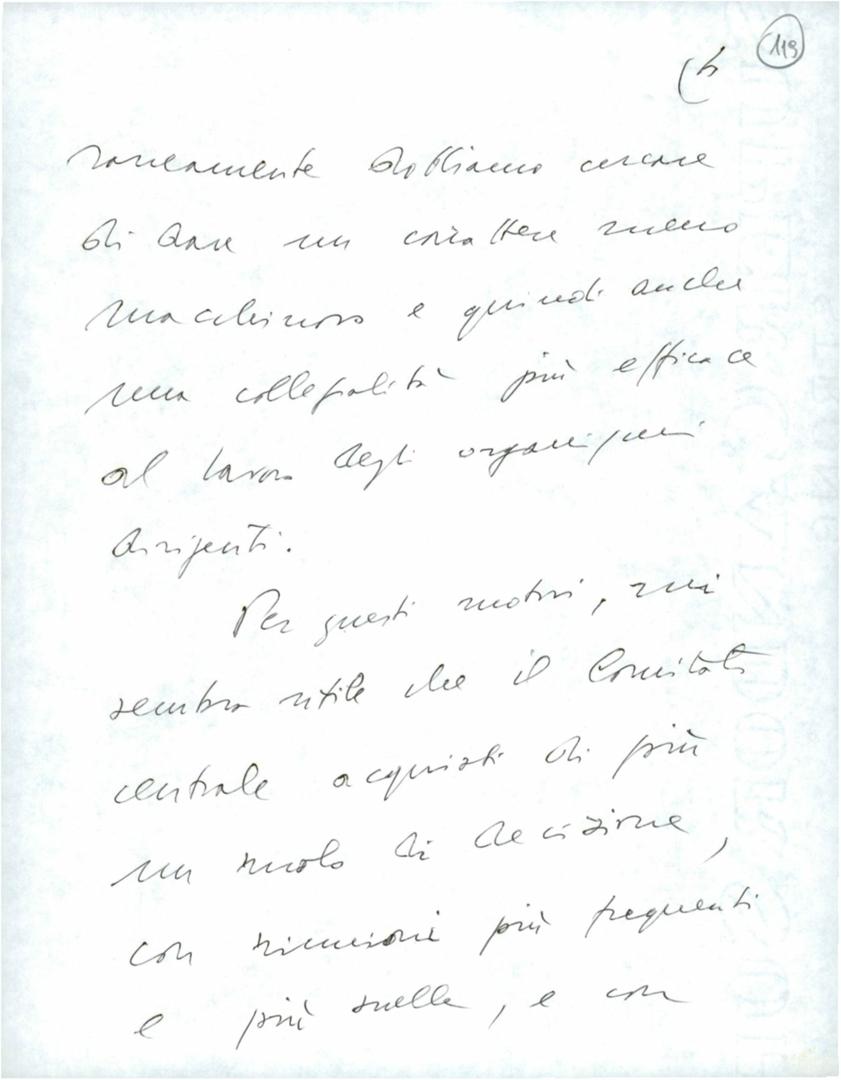 119
raneamente dobbiamo cercare
di dare un carattere meno
macchinoso e quindi anche
una collegialità più efficace
al lavoro degli organismi
dirigenti.
Per questi motivi, mi
sembra utile che il Comitato
centrale acquisti di più
un ruolo di decisione,
con riunioni più frequenti
e più snelle, e con